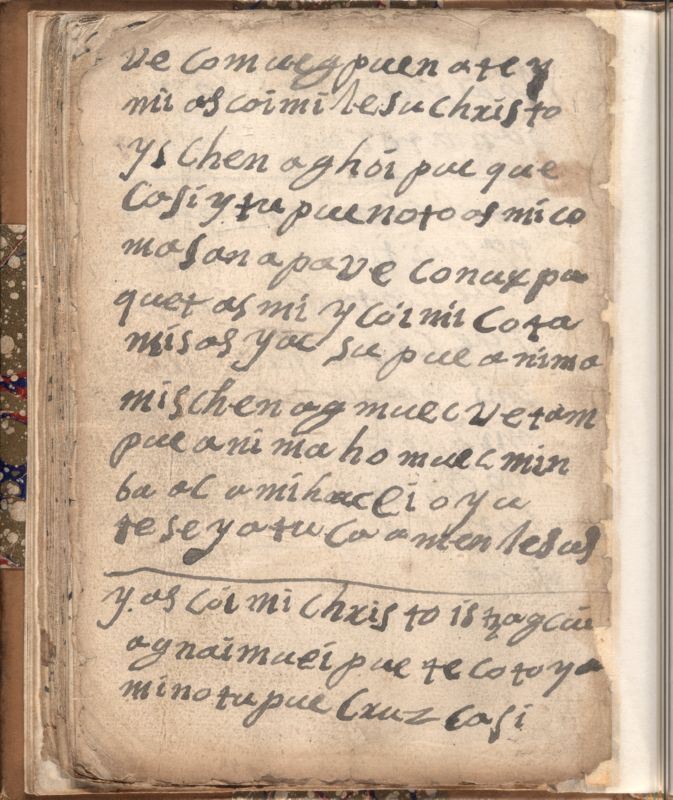 ve comueg puen a te y
mi as coimi Iesu Christo
ys chen aghói pue que
Casi y tu pue noto as mi co
ma san a pa ve conux pa
quet as mi y cói mi cota
mis as y ac su pue anima
mis chen ag muec ve tam
pue anima ho muec min
ba ac a mi hac Ci o y a
te se ya tu ca amen Iesus
y. as cói mi Christo is tzag cui
ag nai mueipue te coto ya
mi notu pue Cruz casi